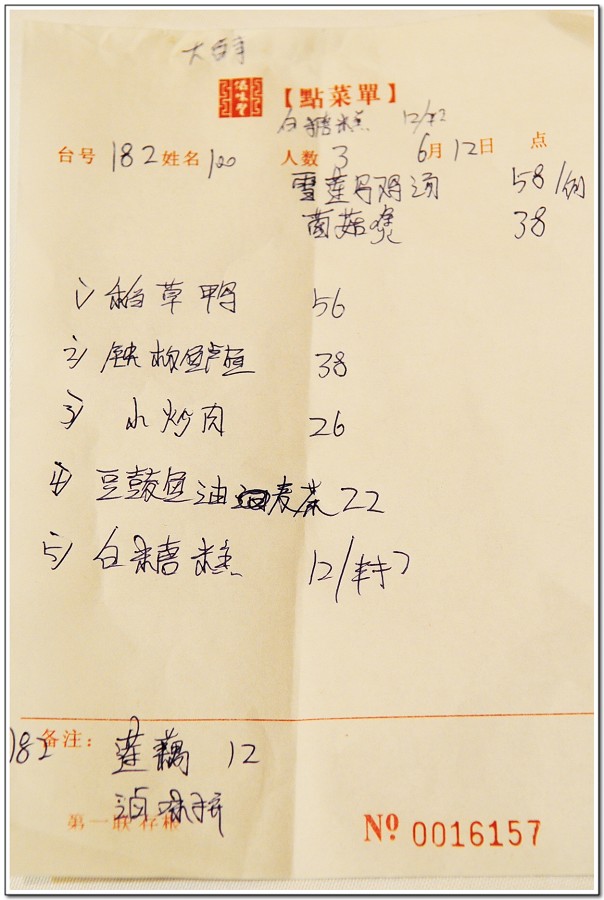 【點菜單】
白糖糕 12/
台号 182 姓名 100 人数 3 6月12日 点
雪莲 鸡汤 58/例
菌菇煲 38
1) 稻草鸭 56
2) 铁板鲈鱼 38
3) 小炒肉 26
4) 豆豉鱼油麦菜 22
5) 白糖糕 12/
182 备注: 莲藕 12
卤味拼
第一联 存根
Nº 0016157